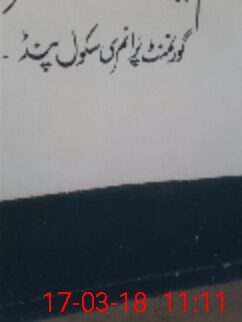 گورنمنٹ پرائمری سکول پنڈ
17-03-18 11:11